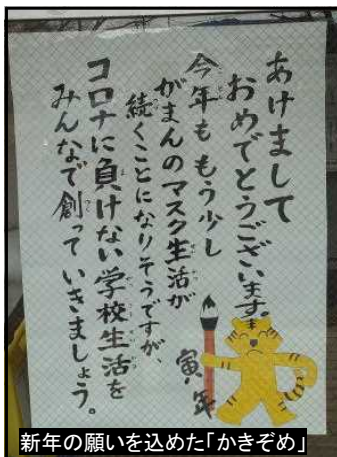 あけまして
おめでとうございます。
今年ももう少し
がまんのマスク生活が
続くことになりそうですが、
コロナに負けない学校生活を
みんなで創っていきましょう。
寅年
新年の願いを込めた「かきぞめ」